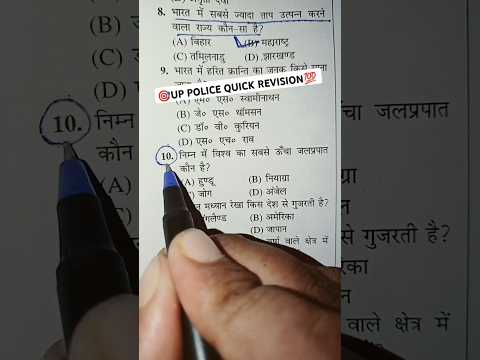 8. भारत में सबसे ज्यादा ताप उत्पन्न करने
वाला राज्य कौन-सा है?
(A) बिहार (B) महाराष्ट्र
(C) तमिलनाडु (D) झारखण्ड
9. भारत में हरित क्रान्ति का जनक किसे माना
🎯UP POLICE QUICK REVISION💯
(A) एम० एस० स्वामीनाथन
(B) जे० एस० थॉमसन
(C) डॉ० वी० कुरियन
(D) एस० एच० राव
10. निम्न में विश्व का सबसे ऊँचा जलप्रपात
कौन है?
(A) हुण्डू (B) नियाग्रा
जोग (D) अंजेल
मध्यान रेखा किस देश से गुजरती है?
(B) अमेरिका
(D) जापान
वाले क्षेत्र में
(D)
10. निम्न
कौन
(A)
जलप्रपात
से गुजरती है?
वाले क्षेत्र में